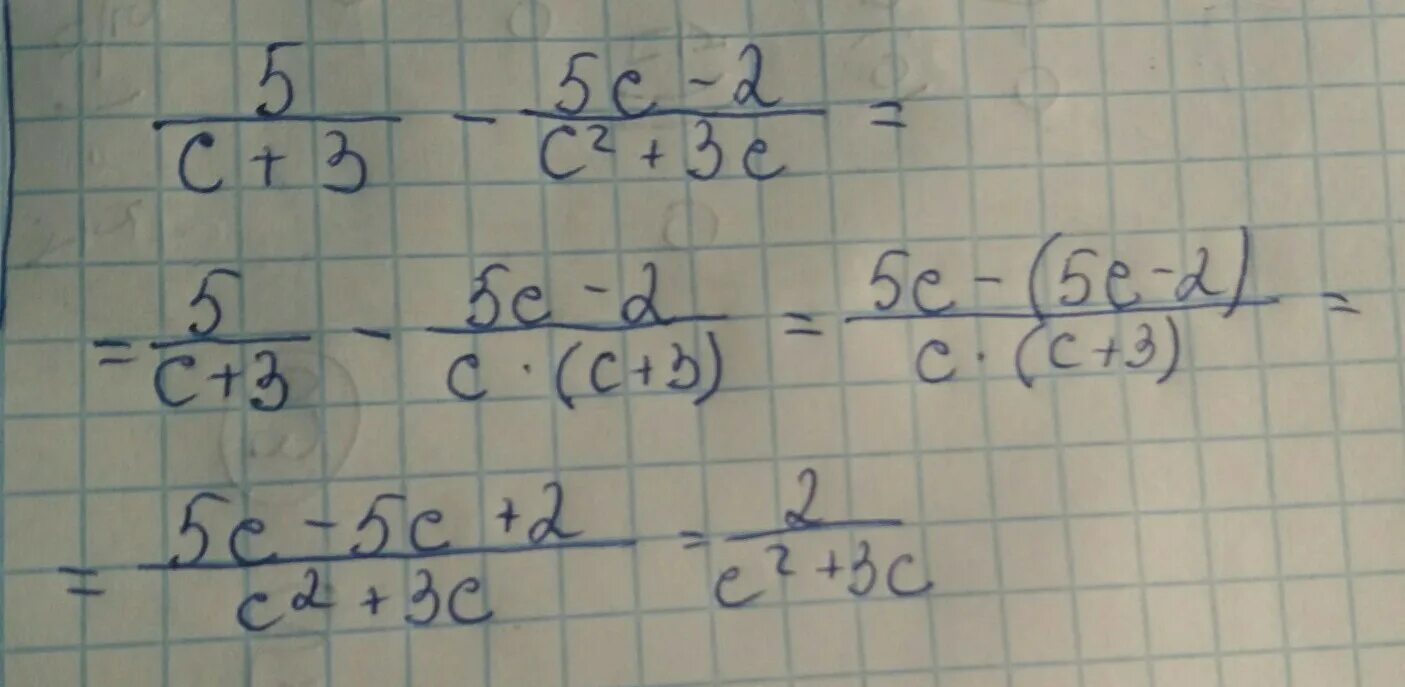 5/(c+3) - (5c-2)/(c²+3c) =
= 5/(c+3) - (5c-2)/(c·(c+3)) = (5c-(5c-2))/(c·(c+3)) =
= (5c-5c+2)/(c²+3c) = 2/(c²+3c)